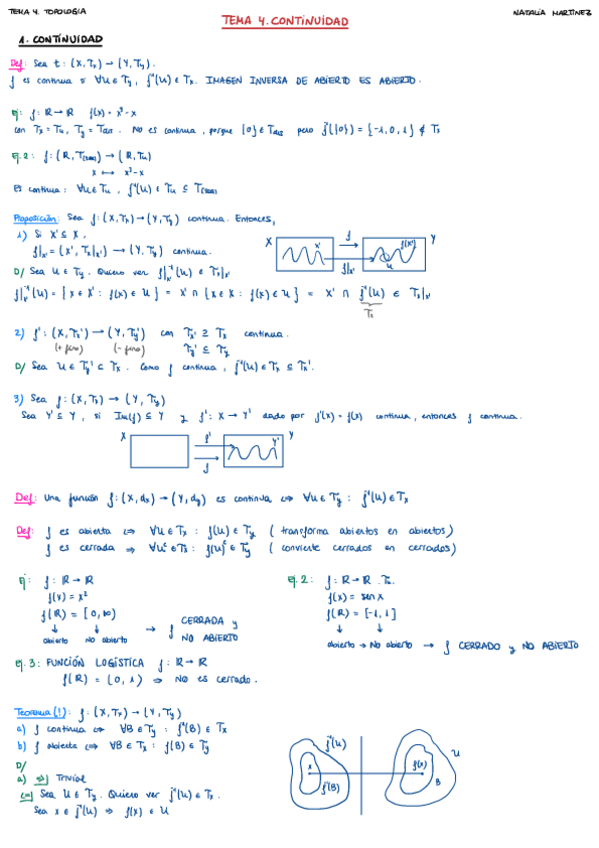 TEMA 4. TOPOLOGIA
NATALIA MARTINEZ
TEMA 4. CONTINUIDAD
1. CONTINUIDAD
Def: Sea f: (X, Tx) → (Y, Ty).
f es continua si ∀U ∈ Ty, f⁻¹(U) ∈ Tx. IMAGEN INVERSA DE ABIERTO ES ABIERTO.
Ej: f: ℝ → ℝ f(x) = x³ - x
con Tx = Tu, Ty = Tdis. No es continua, porque {0} ∈ Tdis pero f⁻¹({0}) = {-1, 0, 1} ∉ Tx
Ej. 2: f: (ℝ, T[,)) → (ℝ, Tu)
x ↦ x³ - x
Es continua: ∀U ∈ Tu, f⁻¹(U) ∈ Tu ⊆ T[,)
Proposición: Sea f: (X, Tx) → (Y, Ty) continua. Entonces,
1) Si X' ⊆ X,
f|x' = (X', Tx|x') → (Y, Ty) continua.
X X' f f|x' f(X') U Y
D/ Sea U ∈ Ty. Quiero ver f|x'⁻¹(U) ∈ Tx|x'
f|x'⁻¹(U) = {x ∈ X' : f(x) ∈ U} = X' ∩ {x ∈ X : f(x) ∈ U} = X' ∩ f⁻¹(U) ∈ Tx|x'
Tx
2) f': (X, Tx') → (Y, Ty') con Tx' ⊇ Tx continua.
(+ fino) (- fino) Ty' ⊆ Ty
D/ Sea U ∈ Ty' ⊂ Tx. Como f continua, f⁻¹(U) ∈ Tx ⊆ Tx'.
3) Sea f: (X, Tx) → (Y, Ty)
Sea Y' ⊆ Y, si Im(f) ⊆ Y y f': X → Y' dado por f'(x) = f(x) continua, entonces f continua.
X f' f Y' Y
Def: Una función f: (X, dx) → (Y, dy) es continua ⇔ ∀U ∈ Ty : f⁻¹(U) ∈ Tx
Def: f es abierta ⇔ ∀U ∈ Tx : f(U) ∈ Ty (transforma abiertos en abiertos)
f es cerrada ⇒ ∀Uᶜ ∈ Tx : f(U)ᶜ ∈ Ty (convierte cerrados en cerrados)
Ej: f: ℝ → ℝ
f(x) = x²
f(ℝ) = [0, ∞)
↓ ↓
abierto No abierto → f CERRADA y NO ABIERTO
Ej. 2: f: ℝ → ℝ Tu.
f(x) = sen x
f(ℝ) = [-1, 1]
↓ ↓
abierto → No abierto → f CERRADO y NO ABIERTO
Ej. 3: FUNCIÓN LOGÍSTICA f: ℝ → ℝ
f(ℝ) = (0, 1) ⇒ No es cerrado.
Teorema (!): f: (X, Tx) → (Y, Ty)
a) f continua ⇔ ∀B ∈ Ty : f⁻¹(B) ∈ Tx
b) f abierta ⇔ ∀B ∈ Tx : f(B) ∈ Ty
D/
a) ⇒) Trivial
⇐) Sea U ∈ Ty. Quiero ver f⁻¹(U) ∈ Tx.
Sea x ∈ f⁻¹(U) ⇒ f(x) ∈ U
f⁻¹(U) x f⁻¹(B) f(x) B U